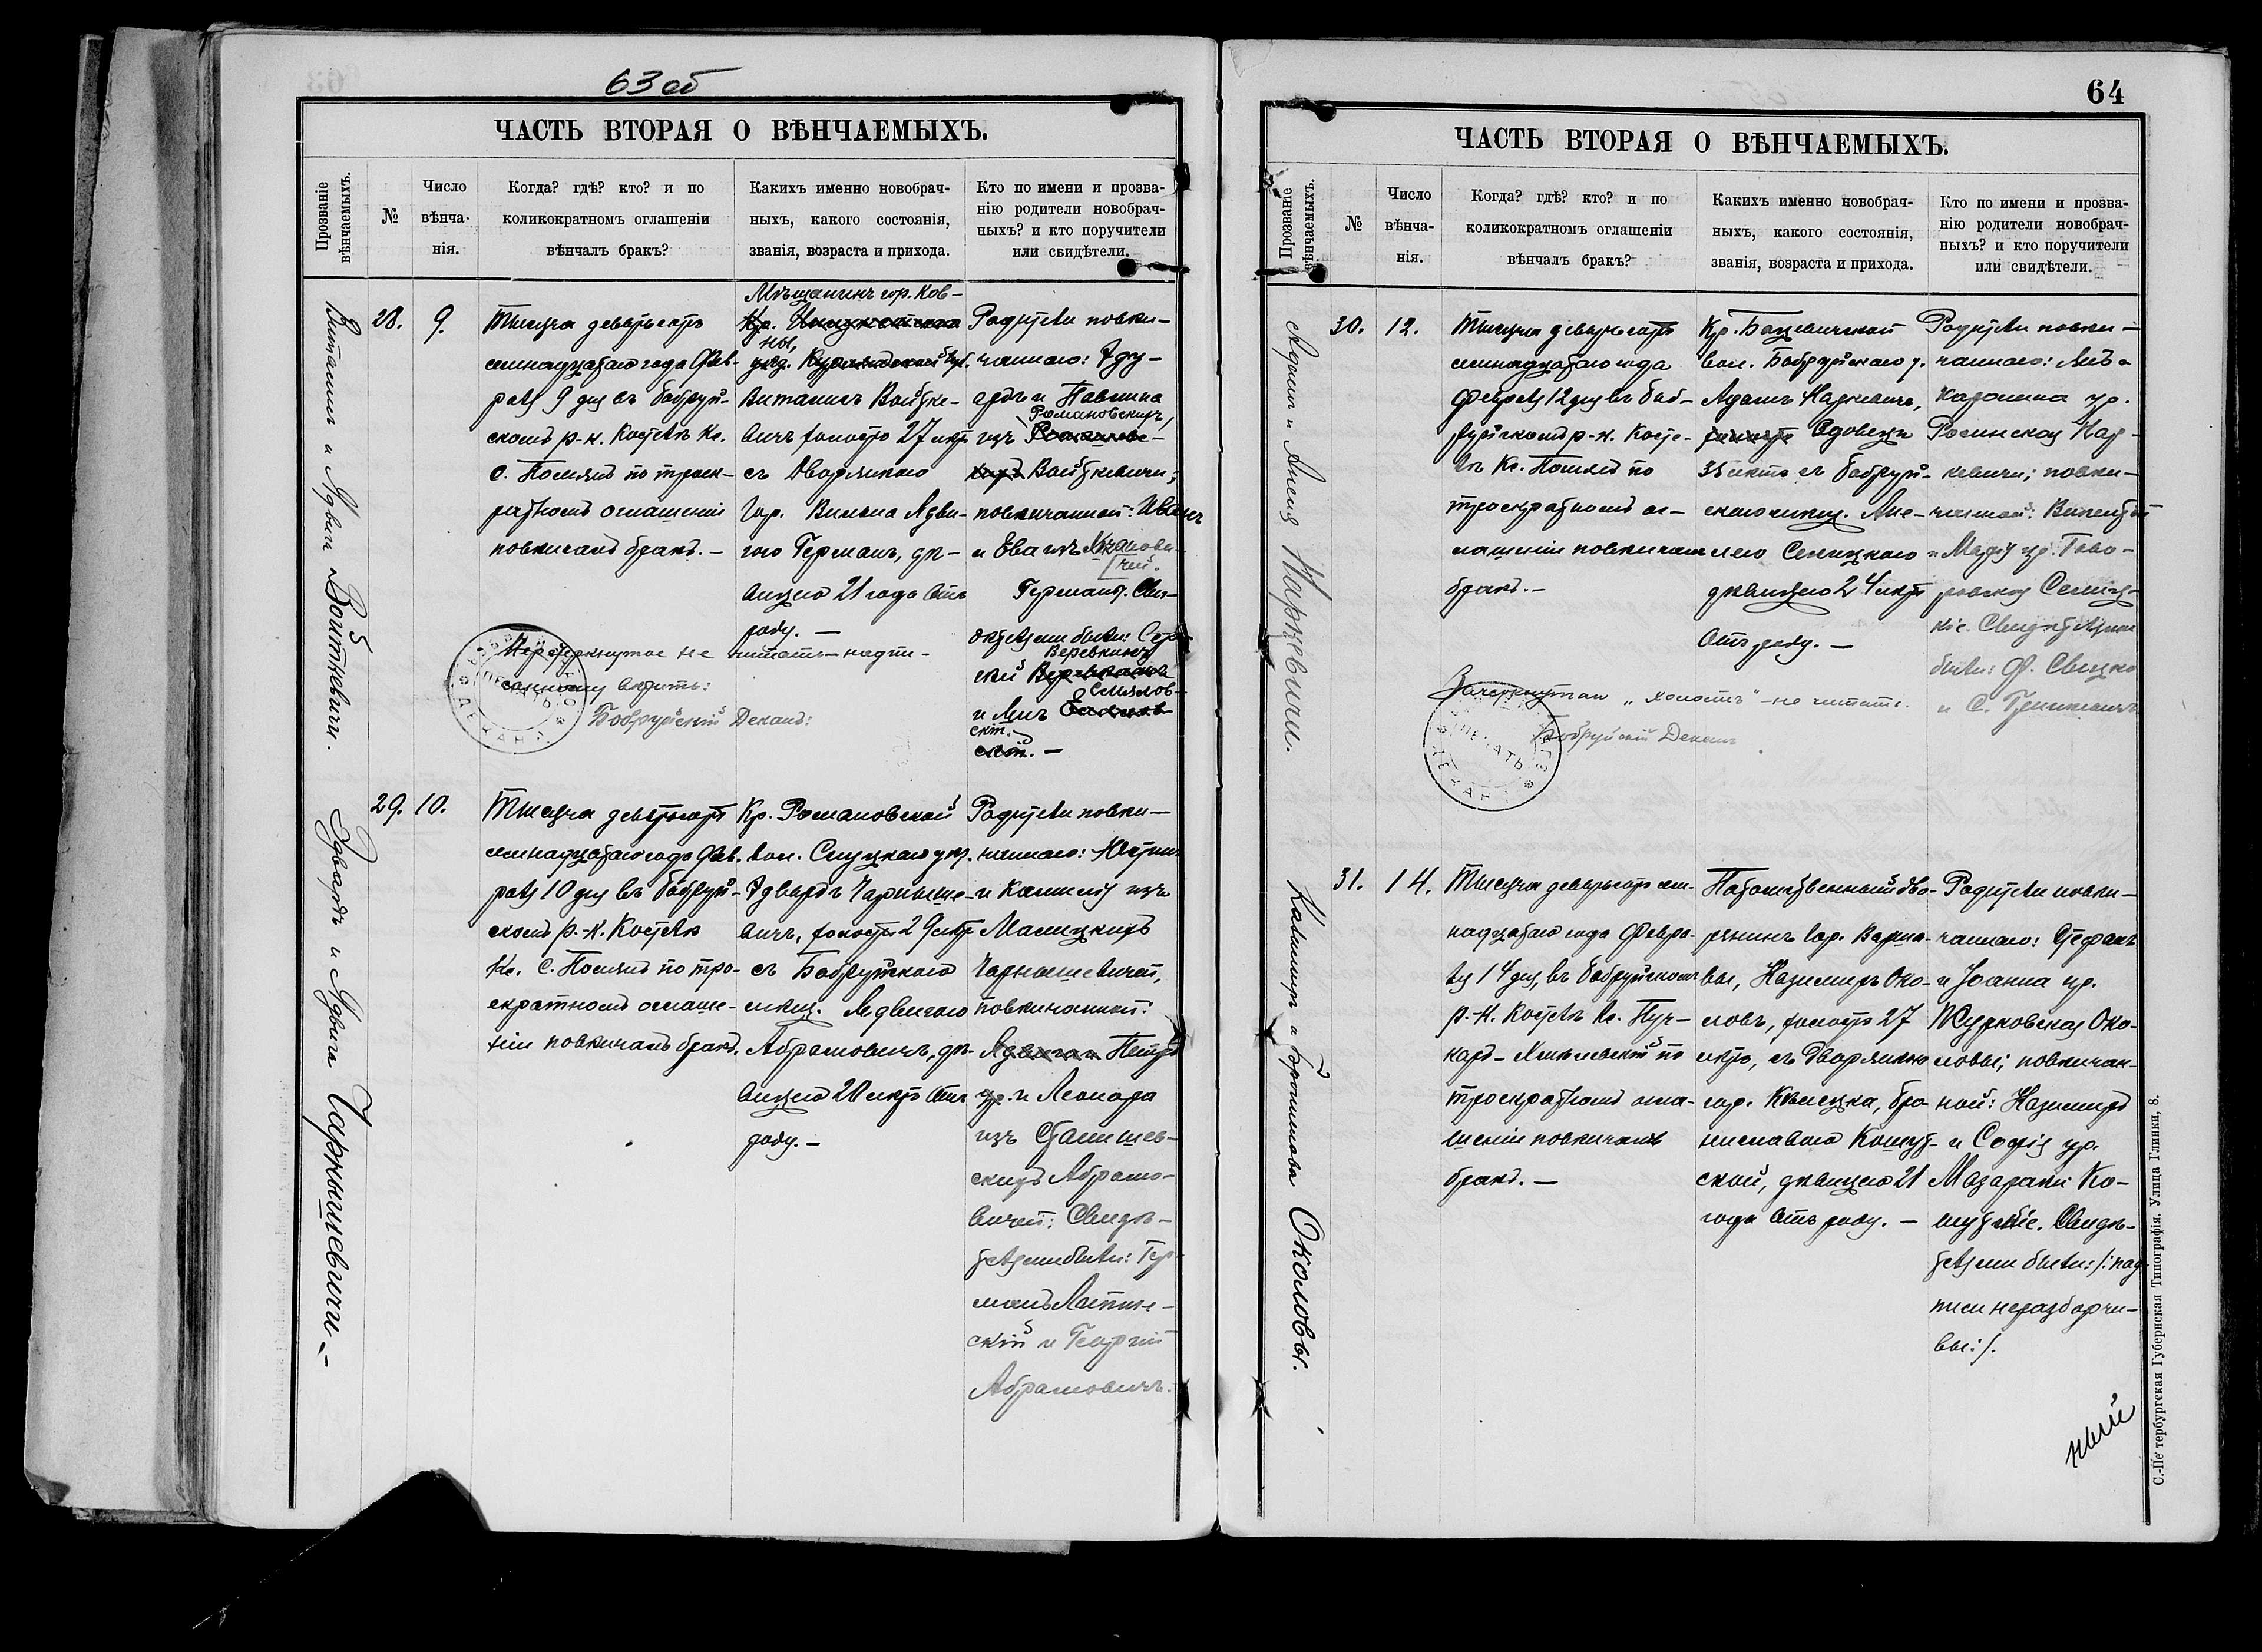 63 об
ЧАСТЬ ВТОРАЯ О ВѢНЧАЕМЫХЪ.
Прозваніе вѣнчаемыхъ.
№
Число вѣнча-
нія.
Когда? гдѣ? кто? и по
коликократномъ оглашеніи
вѣнчалъ бракъ?
Какихъ именно новобрач-
ныхъ, какого состоянія,
званія, возраста и прихода.
Кто по имени и прозва-
нію родители новобрач-
ныхъ? и кто поручители
или свидѣтели.
Витамин и Ядвига Войткевичи.
28.
9.
Тысяча девятьсотъ
семнадцатаго года Фев-
раля 9 дня въ Бобруй-
скомъ р.-к. Костелѣ Кс.
С. Пошлюсъ по троек-
ратномъ оглашеніи
повѣнчалъ бракъ. —
Мѣщанинъ гор. Ков-
ны,
Войтке-
вичъ холостъ 27 лѣтъ
съ Дворянкою
Гор. Вильна Ядви-
гою Германъ, дѣ-
вицею 21 года отъ
роду. —
Родители повѣн-
чаннаго: Эду-
ардъ и Павлина
изъ Романовскихъ,
Войткевичи;
повѣнчанной: Иванъ
и Ева изъ
Германъ. Сви-
дѣтелями были: Сер-
гѣй Веревкинъ
и
Перечеркнутое не читать — надпи-
санному вѣрить:
Бобруйскій Деканъ:
Эдвардъ и Ядвига Чарнышевичи. —
29.
10.
Тысяча девятьсотъ
семнадцатаго года Фев-
раля 10 дня въ Бобруй-
скомъ р.-к. Костелѣ
Кс. С. Пошлюсъ по тро-
екратномъ оглаше-
ніи повѣнчалъ бракъ.
Кр. Романовской
вол. Слуцкаго уѣз.
Эдвардъ Чарныше-
вичъ, холостъ 29 лѣтъ
съ Бобруйскою
мѣщ. Ядвигою
Абрамовичъ, дѣ-
вицею 20 лѣтъ отъ
роду. —
Родители повѣн-
чаннаго:
и Камилія изъ
Малецкихъ
Чарнышевичей,
повѣнчанной:
Петръ
и Леонора
изъ Станишев-
скихъ Абрамо-
вичей: Свидѣ-
телями были: Гер-
манъ
скій и Георгій
Абрамовичъ.
64
ЧАСТЬ ВТОРАЯ О ВѢНЧАЕМЫХЪ.
Прозваніе вѣнчаемыхъ.
№
Число вѣнча-
нія.
Когда? гдѣ? кто? и по
коликократномъ оглашеніи
вѣнчалъ бракъ?
Какихъ именно новобрач-
ныхъ, какого состоянія,
званія, возраста и прихода.
Кто по имени и прозва-
нію родители новобрач-
ныхъ? и кто поручители
или свидѣтели.
Наркевичи.
30.
12.
Тысяча девятьсотъ
семнадцатаго года
Февраля 12 дня въ Боб-
руйскомъ р.-к. Косте-
лѣ Кс. Пошлюсъ по
троекратномъ ог-
лашеніи повѣнчалъ
бракъ. —
Кр. Бацевичской
вол. Бобруйскаго у.
Адамъ Наркевичъ,
холостъ вдовецъ
35 лѣтъ съ Бобруй-
скою мѣщ. Але-
лею Сеницкою
дѣвицею 24 лѣтъ
отъ роду. —
Родители повѣн-
чаннаго:
Каролина ур.
Росинская Нар-
кевичи; повѣн-
чанной: Викентій
и Марія ур.
Сениц-
кіе. Свидѣтелями
были: Ф. Свицко
и С.
Зачеркнутое „холостъ" — не читать.
Бобруйскій Деканъ
Казимиръ и Бронислава Околовы.
31.
14.
Тысяча девятьсотъ сем-
надцатаго года Февра-
ля 14 дня, въ Бобруйскомъ
р.-к. Костелѣ Кс. Пуч-
каръ-Хмѣлевскій по
троекратномъ огла-
шеніи повѣнчалъ
бракъ. —
Потомственный дво-
рянинъ гор. Варша-
вы, Казимиръ Око-
ловъ, холостъ 27
лѣтъ, съ Дворянкою
гор. Клецка, Бро-
ниславою Кошут-
ской, дѣвицею 21
года отъ роду. —
Родители повѣн-
чаннаго: Стефанъ
и Іоанна ур.
Журковская Око-
ловы; повѣнчан-
ной: Казимиръ
и Софія ур.
Мазараки Ко-
шутскіе. Свидѣ-
телями были: /: под-
писи неразборчи-
вы: /.
ный
С.-Петербургская Губернская Типографія. Улица Глинки, 8.